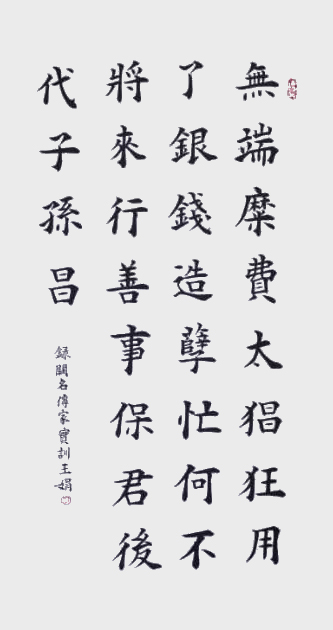 無端糜費太猖狂用
了銀錢造孽忙何不
將來行善事保君後
代子孫昌
録闕名傳家寶訓王娟